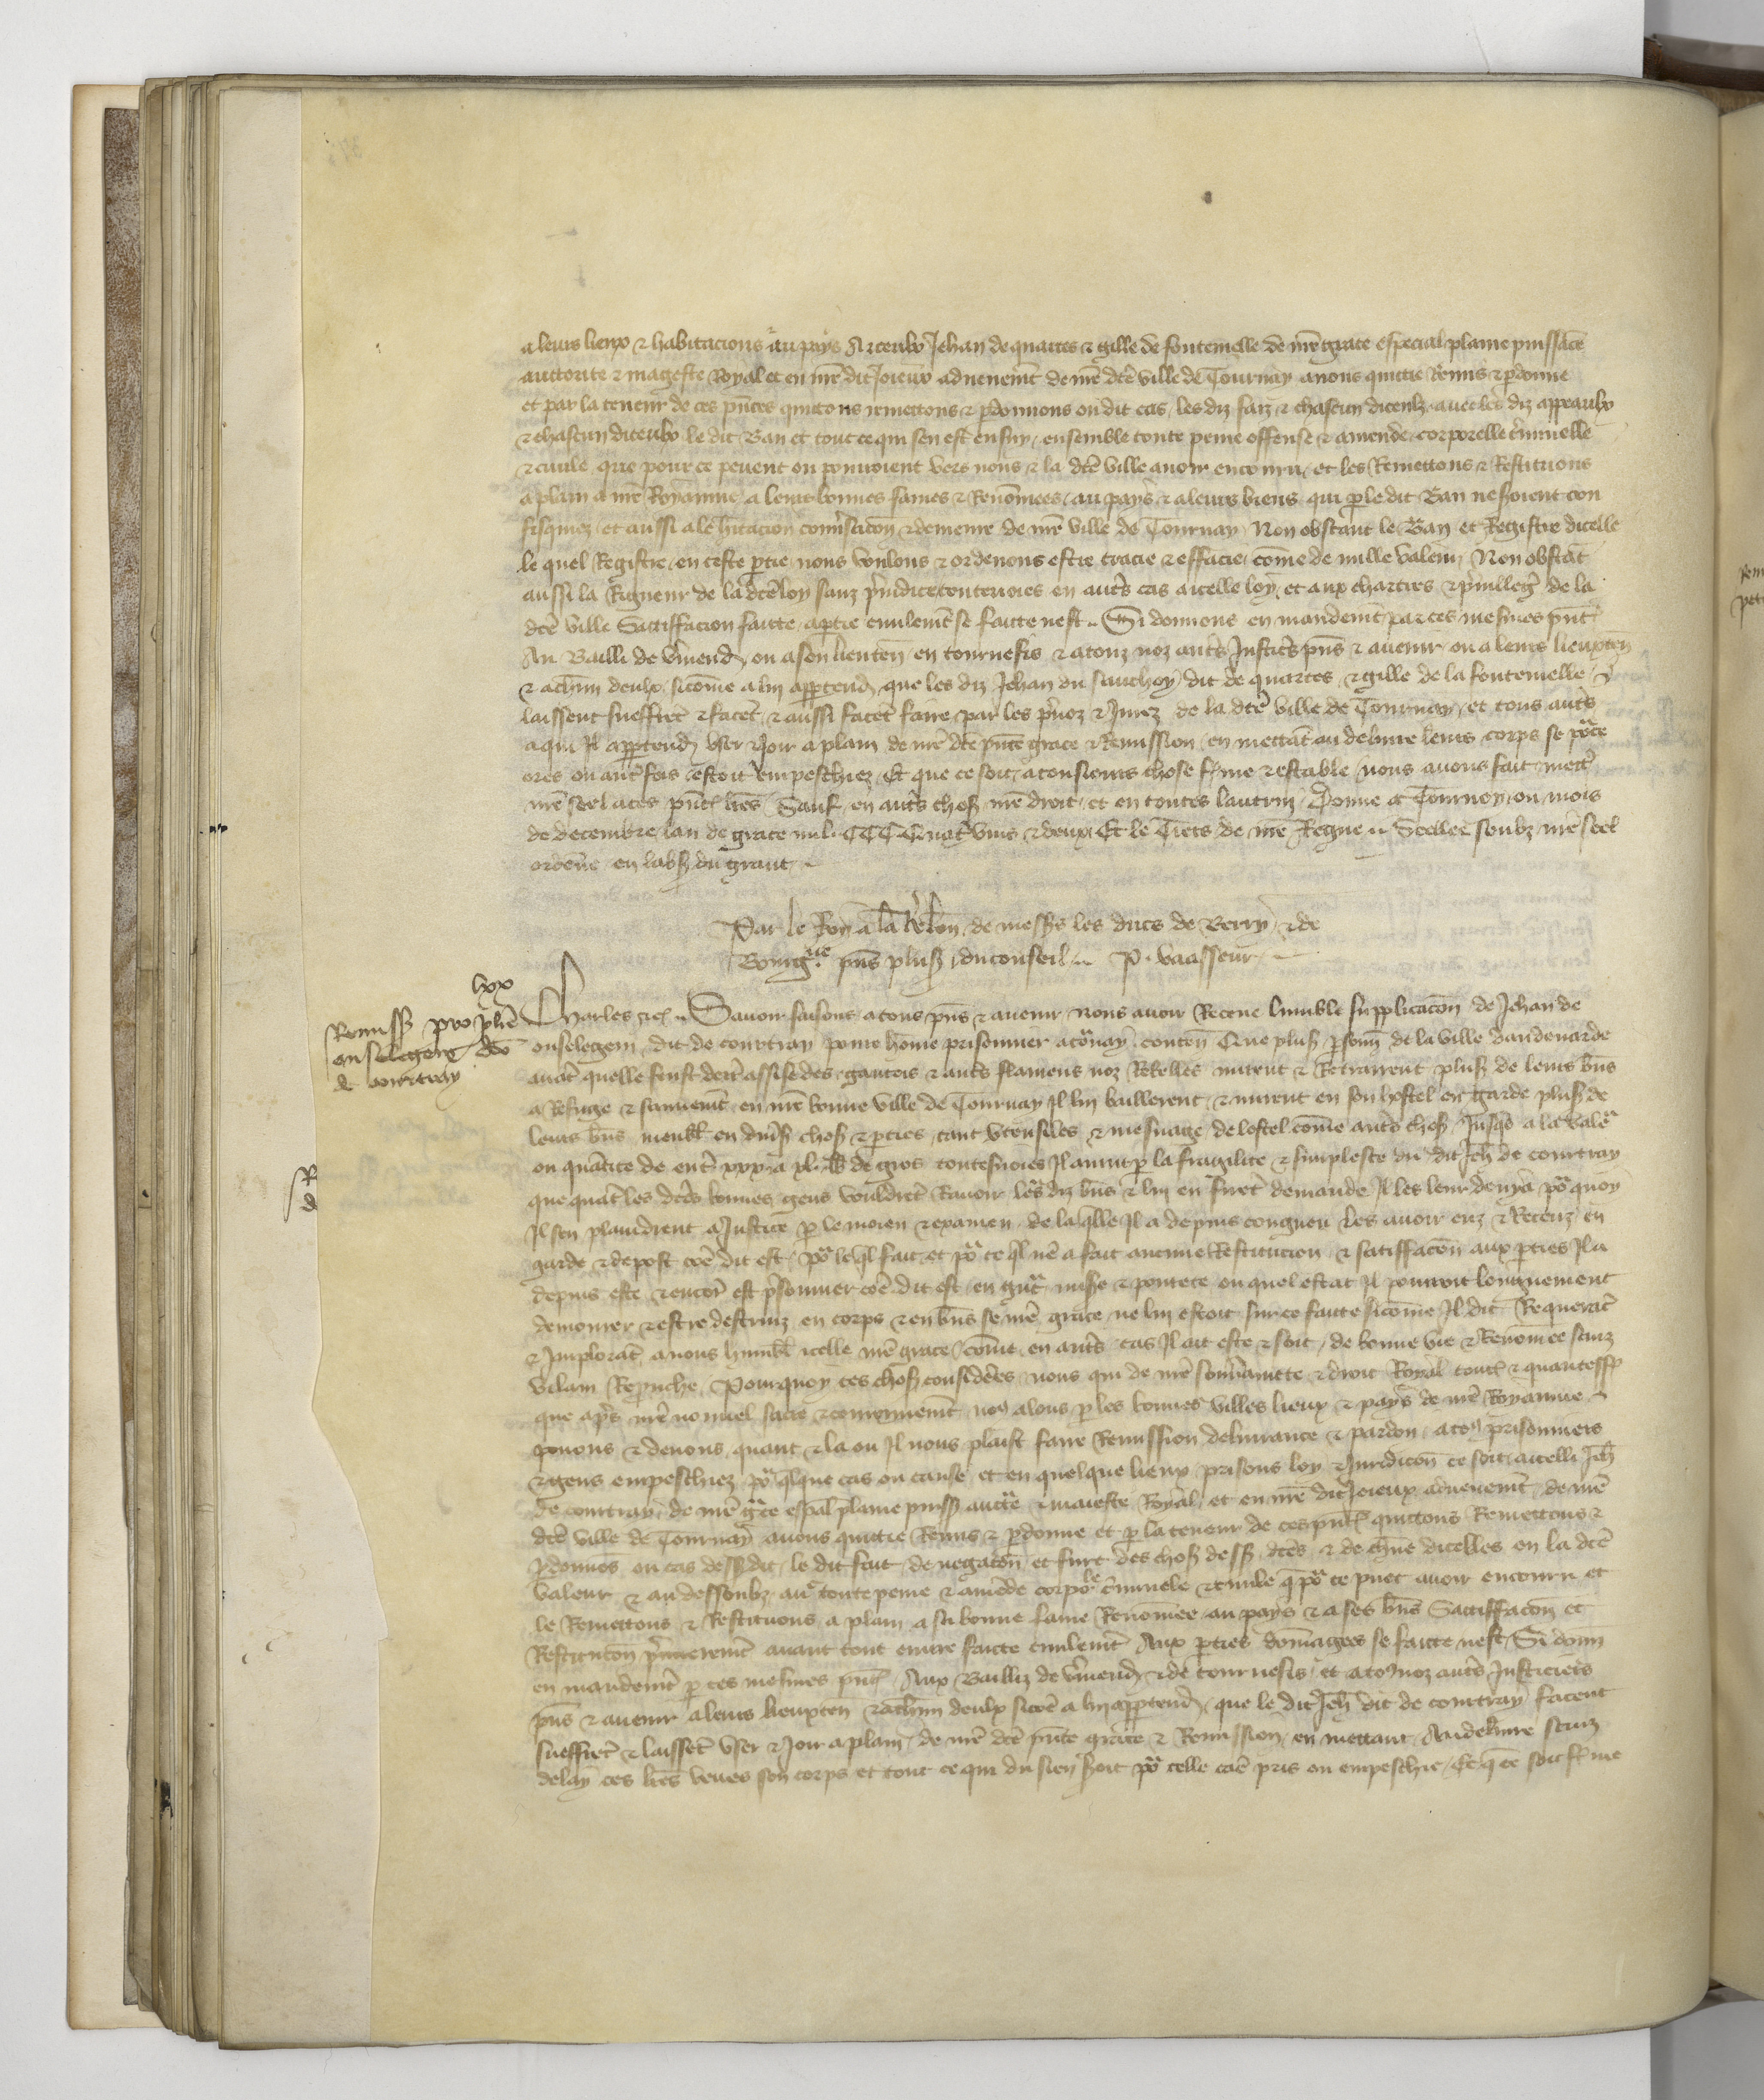 a leurs lieux & habitacions au pays A yceulx Jehan de quartes & gille de fontenelle de nr̄e grace especial plaine puissāce
auctorite & mageste Royal et en nr̄e dit Joieux aduenemēt de nr̄e dc̄e ville de Tournay auons quictie Remis & pdonne
et par la teneur de ces pn̄tes quictons remettons & pdonnons ou dit cas les diz faiz & chascun diceulx auec les diz appeaulx
& chascun diceulx le dit Ban et tout ce qui sen est ensuy ensemble toute peine offense & amende corporelle cⁱminelle
& ciuile que pour ce peuent ou pourroient vers nous & la dc̄e ville auoir encouru et les Remettons & Restituons
a plain a nr̄e Royaume a leurs bonnes fames & Renōmees au pays & a leurs biens qui p le dit Ban ne soient con
fisquiez et aussi a le hītacion conūsacōn & demeure de nr̄e ville de Tournay Non obstant le Ban et Registre dicelle
le quel Registre en ceste ptie nous voulons & ordenons estre tracie & effacie cōme de nulle valeur Non obstāt
aussi la Rigueur de la dc̄e loy sanz pⁱiudice toutesuoies en autrs cas a icelle loy et aux chartres & pⁱuilleg de la
dc̄e ville Satiffacion faicte a ptie ciuilemēt se faicte nest Si donnons en mandemēt par ces mesmes pn̄t
Au Bailli de vⁱmend ou a son lieuten̄ en tournesis & a touz noz autrs Justicrs pn̄s & auenir ou a leurs lieuxten̄
& a ch̄un deulx sicōme a lui apptend que les diz Jehan du sauchoy dit de quartes & gille de la fontenelle
laissent sueffrēt & facēt & aussi facēt faire par les pⁱuoz & Jurez de la dc̄e ville de Tournay et tous autrs
a qui Il apptend vser & Joir a plain de nr̄e dc̄e pn̄te grace & Remission en mettāt au deliure leurs corps se pour ce
ores ou autrefois estoit empeschiez Et que ce soit a tousiours chose fⁱme & estable nous auons fait mettr
nr̄e seel a ces pn̄t lr̄es Sauf en autrs chos nr̄e droit et en toutes lautruy Donne a Tournay ou mois
de decembre lan de grace mil CCC quatre vins & deux Et le Tiers de nr̄e Regne Scellee soubz nr̄e seel
ordene en labs du grant
Par le Roy a la Rel̄on de mess les ducs de Berry & de
Bourg͞ne pn̄s plus du conseil P. vaasseur
lxx
Remiss pro Joh̄e
onselegem dc̄o
de courtray
Charles etc Sauoir faisons a tous pn̄s & auenir nous auoir Receue lumble supplicacōn de Jehan de
onselegem dit de courtray poure hōme prisonnier a tournay conten̄ Que plus psonn̄ de la ville daudenarde
auāt quelle feust dernr assise des gantois & autrs flamens noz Rebelles mirent & Retrairent plus de leurs bn̄s
a Refuge & sauuemēt en nr̄e bonne ville de Tournay Il lui baillerent & mirent en son hostel en garde plus de
leurs bn̄s meubl en diuⁱs chos & pties tant vtensiles & mesnage de lostel cōme autrs chos Jusq̄s a la value
ou quātite de entr xxx a xl lb de gros toutesuoies Il auint p la fragilite & simplesce du dit Jeh̄ de courtray
que quāt les dc̄es bonnes gens vouldrēt Rauoir leurs diz bn̄s & lui en firēt demande Il les leur denya pour quoy
Il sen plaindrent a Justice p le moien & examen de laq̄lle Il a depuis congneu les auoir euz & Receuz en
garde & depost cōe dit est pour leq̄l fait et pour ce q̄l nē a fait aucune Restitucion & satiffacōn aux pties Il a
depuis este & encor est pⁱsonnier cōe dit est en gnt misere & pourete ou quel estat Il pourroit longuement
demourer & estre destruiz en corps & en bn̄s se nr̄e grace ne lui estoit sur ce faicte sicōme Il dit Requerāt
& Implorāt a nous humbl icelle nr̄e grace cōme en autrs cas Il ait este & soit de bonne vie & Renōmee sanz
vilain Repruche Pourquoy ces chos considerees nous qui de nr̄e souueraintte & droit Royal tout & quantesf
que apres nr̄e nouuel sacre & couronnemēt nous alons p les bonnes villes lieux & pays de nr̄e Royaume
pouons & deuons quant & la ou Il nous plaist faire Remission deliurance & pardon a tous prisonniers
& gens empeschiez pour q̄lque cas ou cause et en quelque lieux prisons loy & Juridicōn ce soit a icelli Jeh̄
de courtray de nr̄e gr̄ce esp̄al plaine puiss auctte & maieste Royal et en nr̄e dit Joieux aduenemēt de nr̄e
dc̄e ville de Tournay auons quictie Remis & pdonne et p la teneur de ces pn̄t quictons Remettons &
pdonnos ou cas dessusdit le dit fait de negacōn et furt des chos dess dc̄es & de ch̄une dicelles en la dc̄e
valeur & au dessoubz auec toute peine & amēde corporele cⁱminele & ciuile q̄ pour ce puet auoir encouru et
le Remettons & Restituons a plain a sa bonne fame Renōmee au pays & a ses bn̄s Satiffacōn et
Restitucōn pⁱmieremēt auant tout euure faicte ciuilemēt Aux pties domagees se faicte nest Si donn̄
en mandemēt p ces mesmes pn̄t Aux Bailliz de vⁱmend & de tournesis et a tous noz autrs Justiciers
pn̄s & auenir a leurs lieuxten̄ & a ch̄un deulx sicōe a lui apptend que le dit Jeh̄ dit de courtray facent
sueffrēt & laissēt vser & Joir a plain de nr̄e dc̄e pn̄te grace & Remission en mettant Au deliure sanz
delay ces lr̄es veues son corps et tout ce qui du sien soit pour celle cāe pris ou empeschie Et q̄ ce soit fⁱme